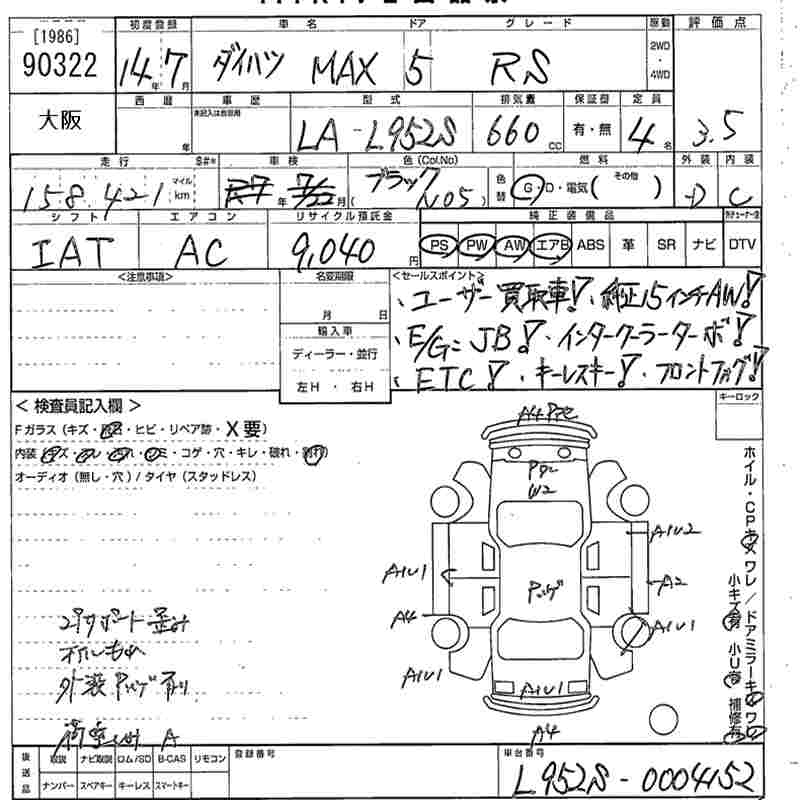 [1986]
90322
初度登録
14年7月
車名
ダイハツ MAX
ドア
5
グレード
RS
原動
2WD
・
4WD
評価点
3.5
大阪
西暦
年
車歴
未記入は自家用
型式
LA-L952S
排気量
660cc
保証書
有・無
定員
4名
走行
$#*
158,421
マイル
km
車検
年 月
色(Col,No)
ブラック
(N05)
色替
燃料
G・D・電気( その他 )
外装
D
内装
C
シフト
IAT
エアコン
AC
リサイクル預託金
9,040円
純正装備品
PS PW AW エアB ABS 革 SR ナビ DTV
<注意事項>
名変期限
月 日
輸入車
ディーラー・並行
左H ・ 右H
<セールスポイント>
、ユーザー買取車!・純正15インチAW!
、E/G=JB!・インタークーラーターボ!
、ETC!・キーレスキー!・フロントフォグ!
キーロック
< 検査員記入欄 >
Fガラス(キズ・ ・ヒビ・リペア跡・X要)
内装( ・コゲ・穴・キレ・破れ・ )
オーディオ(無し・穴)/タイヤ(スタッドレス)
A4
W2
A1U1
A1U2
A2
A4
A1U1
A1U1
A1U1
A4
ホイル・CPキズ ワレ/ドアミラーキズ ワレ
小キズ有 小U有 補修有
コアサポート歪み
外装 有り
A
後送品
取説 ナビ取説 ロム/SD B-CAS リモコン
ナンバー スペアキー キーレス スマートキー
登録番号
車台番号
L952S-0004152